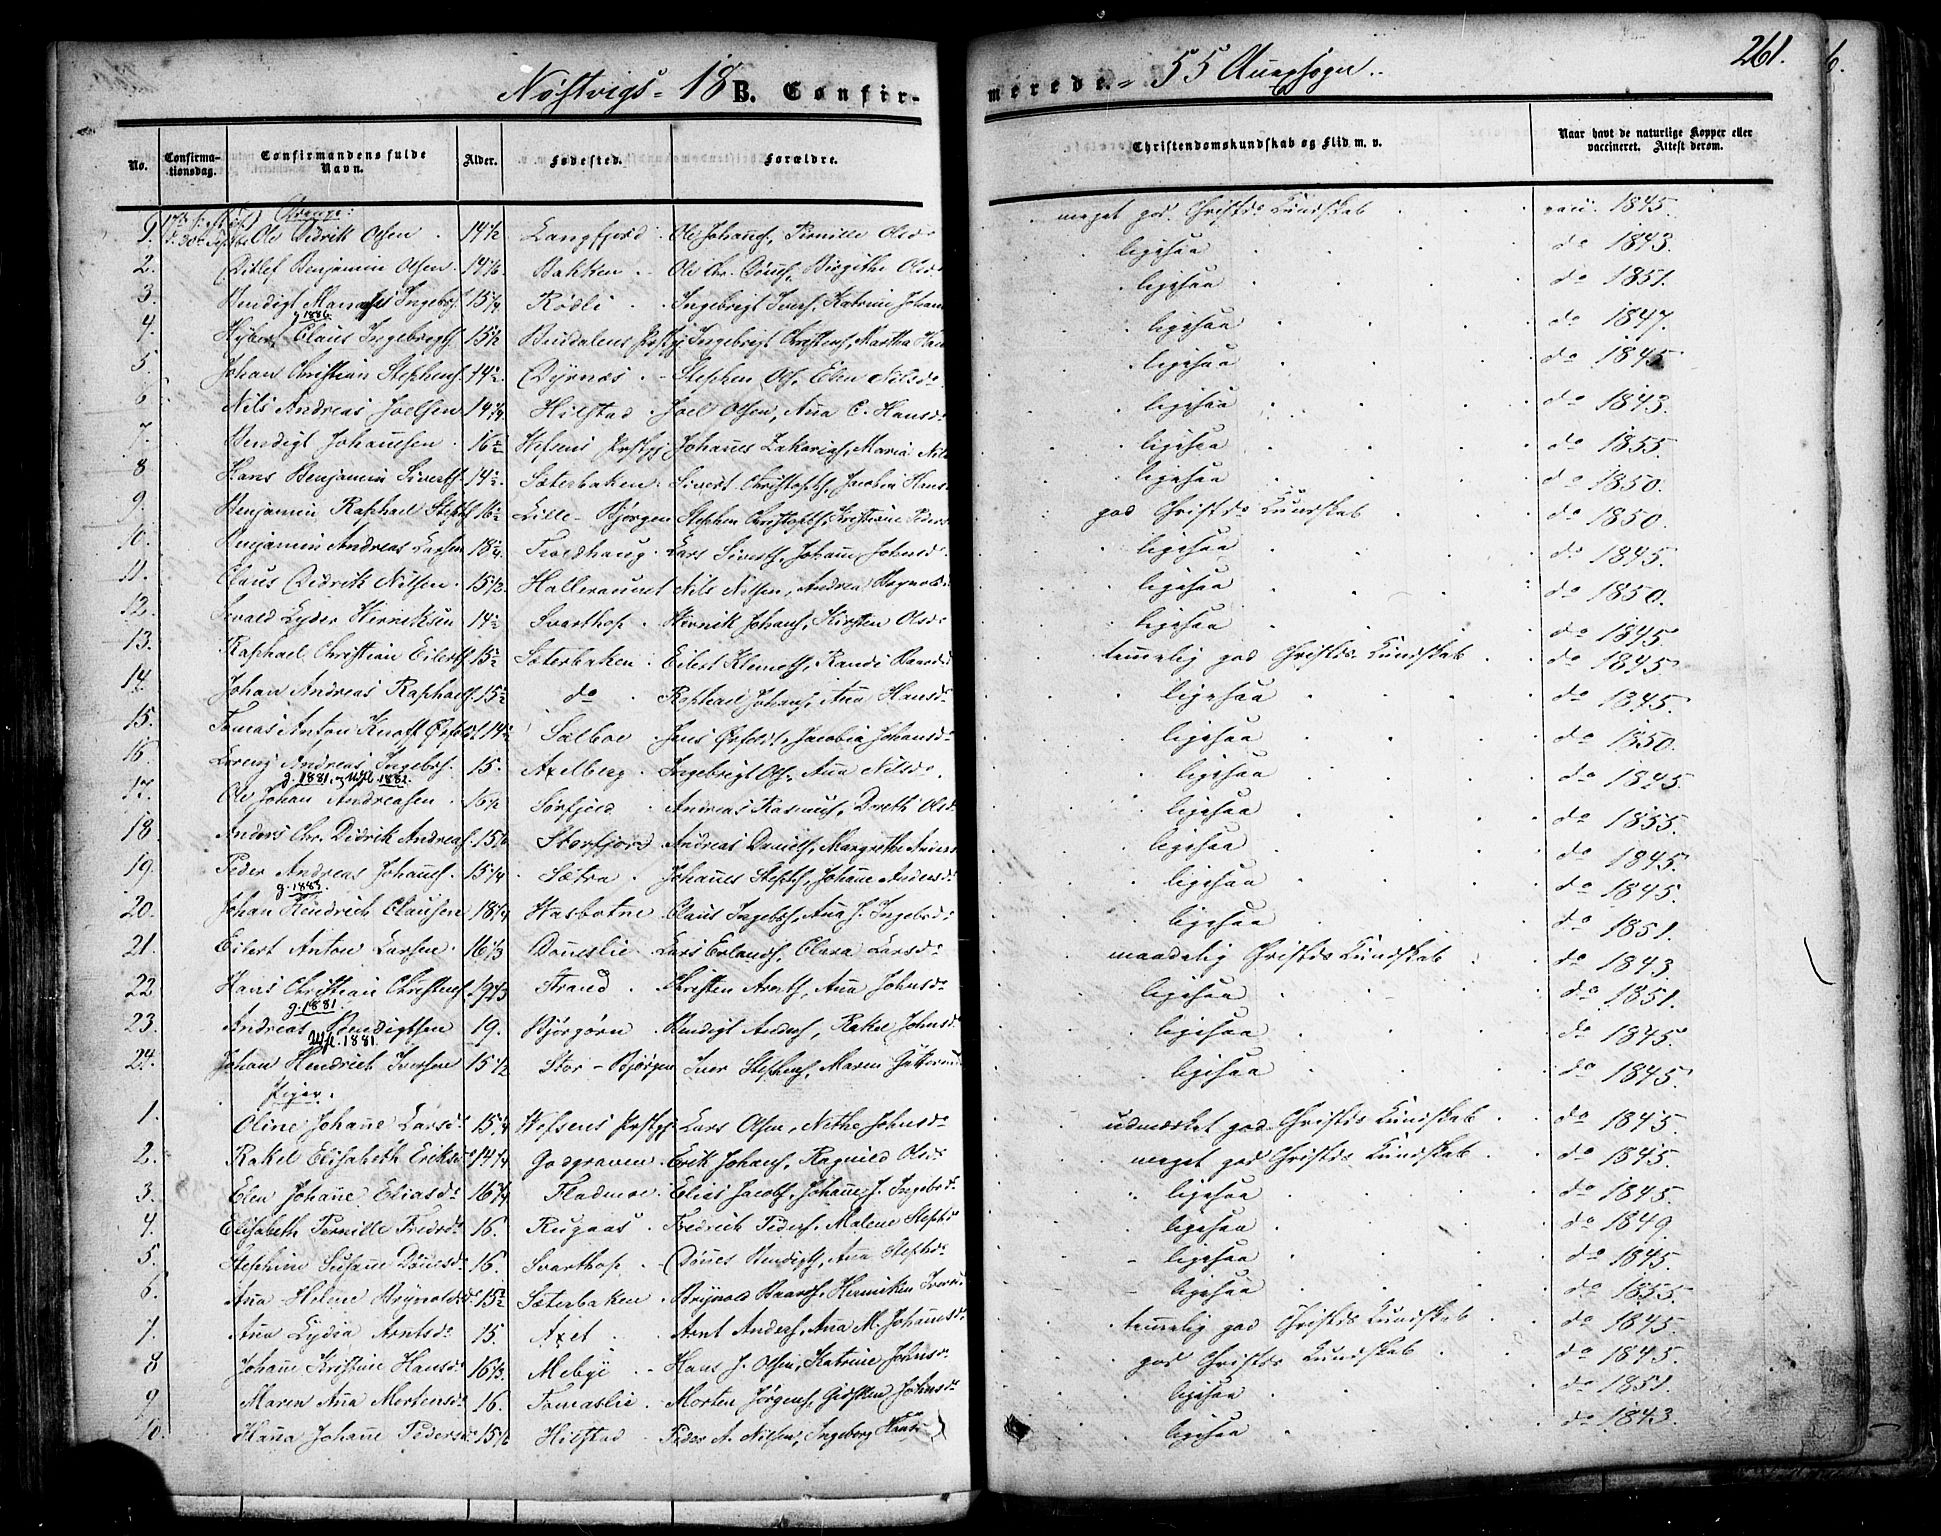 Nøstvigs- 18 B. Confirmerede. 55 Annexsogn 261.
No. Confirmationsdag. Confirmandens fulde Navn. Alder. Fødested. Forældre. Christendomskundskab og Flid m. v. Naar havt de naturlige Kopper eller vaccineret. Attest derom.
Drenge:
1. Ole Didrik Olsen 14½ Langfjord Ole Johans, Pernille Olsd. meget god Christds Kundskab vacc. 1845.
2. Ditlef Benjamin Olsen Bakken Ole Chr. Dønes, Birgithe Olsd. ligesaa do 1843.
3. Bendigt Ingebs Rødli Ingebrigt Ivers, Katrine Johan ligesaa do 1851.
g 1886
4. Claus Ingebrigts 15½ Ingebrigt Christens, Martha Han ligesaa do 1847.
5. Johan Christian Stephens 14 Dyrnæs Stephen Ols, Elen Nilsd. ligesaa do 1845
6. Nils Andreas Joelsen 14¼ Hilstad Joel Olsen, Ana C. Hansd. ligesaa do 1843.
7. Bendigt Johannesen 16 Hefsens Prstgj Johanes Zakarias, Maria Nils ligesaa do 1855.
8 Hans Benjamin Siverts 14 Sæterbaken Sivert Christophs, Jacobia Hans ligesaa do 1850.
9. Benjamin Raphael Stephs 16 Lille-Bjørgen Stephen Christophs, Kristiane Peders god Christds Kundskab do 1850.
10. Benjamin Andreas Larsen 18 Tvedhaug Lars Siverts, Johane Johnsd. ligesaa do 1845.
11. Claus Didrik Nilsen 15½ Nils Nilsen, Andrea ligesaa do 1850.
12. Lyder Henriksen 14 Svarthop Henrik Johans, Kirsten Olsd. ligesaa do 1845.
13. Raphael Christian Eilerts 15 Sæterbaken Eilert Klemets, Randi Baards temelig god Christds Kundskab do 1845
14. Johan Andreas Raphaels 15 do Raphael Johans, Ana Hansd. ligesaa do 1845.
15. Tomas Anton Knoff 14 Sælboe Jens, Jacobia Johansd. ligesaa do 1850.
16. Lorenz Andreas Ingebs. 15. Axelberg Ingebrigt Ols, Ana Nilsd. ligesaa do 1845.
g. 1881. 1881.
17. Ole Johan Andreasen 16½ Sørfjord Andreas Rasmus, Doreth Olsd ligesaa do 1855.
18. Anders Chr. Didrik Andreas Storfjord Andreas Daniels, Margrethe Anders ligesaa do 1845.
19. Peder Andreas Johans. 15¼ Sætra Johanes Stephs, Johane Andersd. ligesaa do 1845.
g. 1883.
20. Johan Hendrich Clausen 18¼ Hasbotne Claus Ingebs, Ana J. Ingebsd. ligesaa do 1851.
21. Eilert Anton Larsen 16⅓ Døneslie Lars Erlands, Clara Larsd. maadelig Christds Kundskab do 1843.
22 Hans Christian Christens 19⅓ Strand Christen Arnts, Ana Johnsd. ligesaa do 1851.
g. 1881.
23. Andreas Bendigtsen 19. Bjørgørn Bendigt Anders, Rakel Johnsd. ligesaa do 1845.
1881.
24. Johan Hendrich Iversen 15½ Stor-Bjørgen Iver Stephens, Maren ligesaa do 1845.
Piger.
1. Oline Johane Larsd. 15¼ Hefsens Prstgj Lars Olsen, Nethe Johnsd. udmærket god Christds Kundskab do 1845.
2. Rakel Elisabeth Eriksd. 14¼ Godgraven Erik Johans, Ragnild Olsd. meget god Christds Kundskab do 1845.
3. Elen Johane Eliasd. 16¼ Fladmoe Elias Jacobs, Johane J. Ingebsd. ligesaa do 1845.
4. Elisabeth Pernille Fredrd. 16. Rugaas Fredrich Peders, Malene Stephs ligesaa do 1849.
5. Stephine Susane Dønesd. 16. Svarthop Dønes Bendigts, Ana Stephd. ligesaa do 1845.
6. Ana Helene Brynolds 15 Sæterbaken Brynold Baards, Henriken Ivers ligesaa do 1855.
7. Ana Lydia Arntsd. 15. Axet Arnt Anders, Ana M. Johansd. temelig god Christds Kundskab do 1845.
8 Johane Kristine Hansd. 16⅓. Mebye Hans J. Olsen, Katrine Johnsd. god Christds Kundskab do 1845.
9 Maren Ana Mortensd. 16. Tomaslie Morten Jørgens, Johnsd. ligesaa do 1851.
10. Hana Johane Peders Hilstad Peder A. Nilsen, Ingeborg Hans ligesaa do 1843.